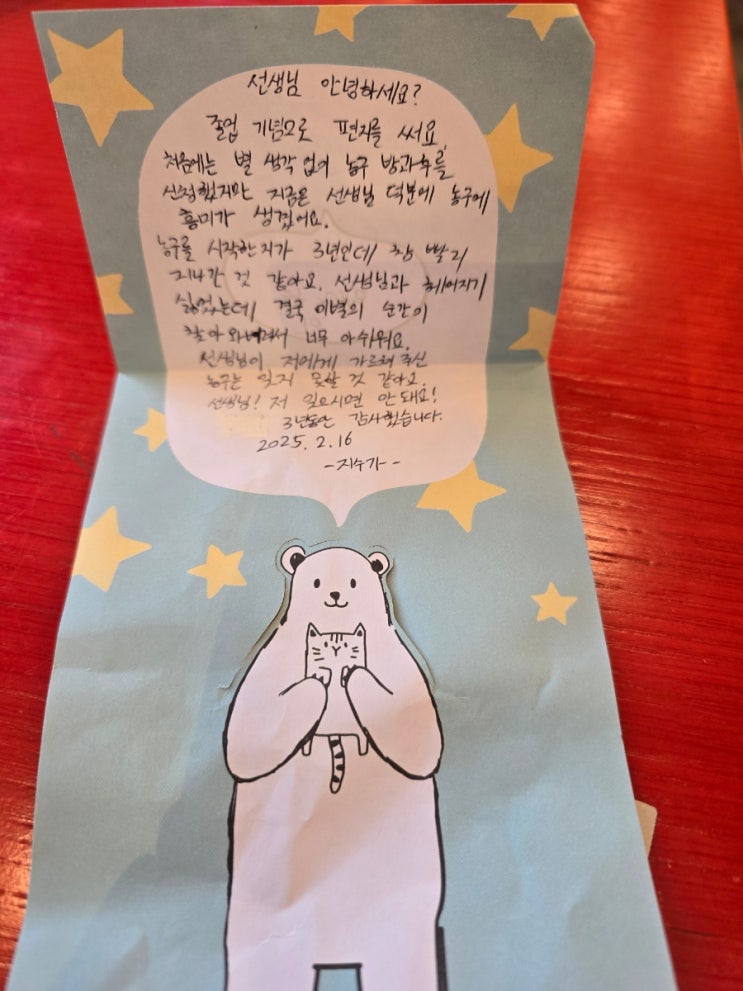 선생님 안녕하세요?
졸업 기념으로 편지를 써요.
처음에는 별 생각 없이 농구 방과후를
신청했지만 지금은 선생님 덕분에 농구에
흥미가 생겼어요.
농구를 시작한지가 3년인데 참 빨리
지나간 것 같아요. 선생님과 헤어지기
싫었는데 결국 이별의 순간이
찾아와버려서 너무 아쉬워요.
선생님이 저에게 가르쳐 주신
농구는 잊지 못할 것 같아요.
선생님! 저 잊으시면 안 돼요!
3년동안 감사했습니다.
2025. 2. 16
-지수가-